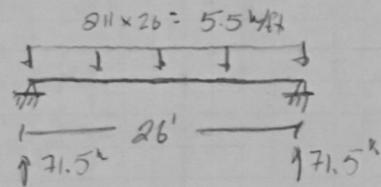 211 x 26 = 5.5 k/ft
26'
71.5ᵏ 71.5ᵏ